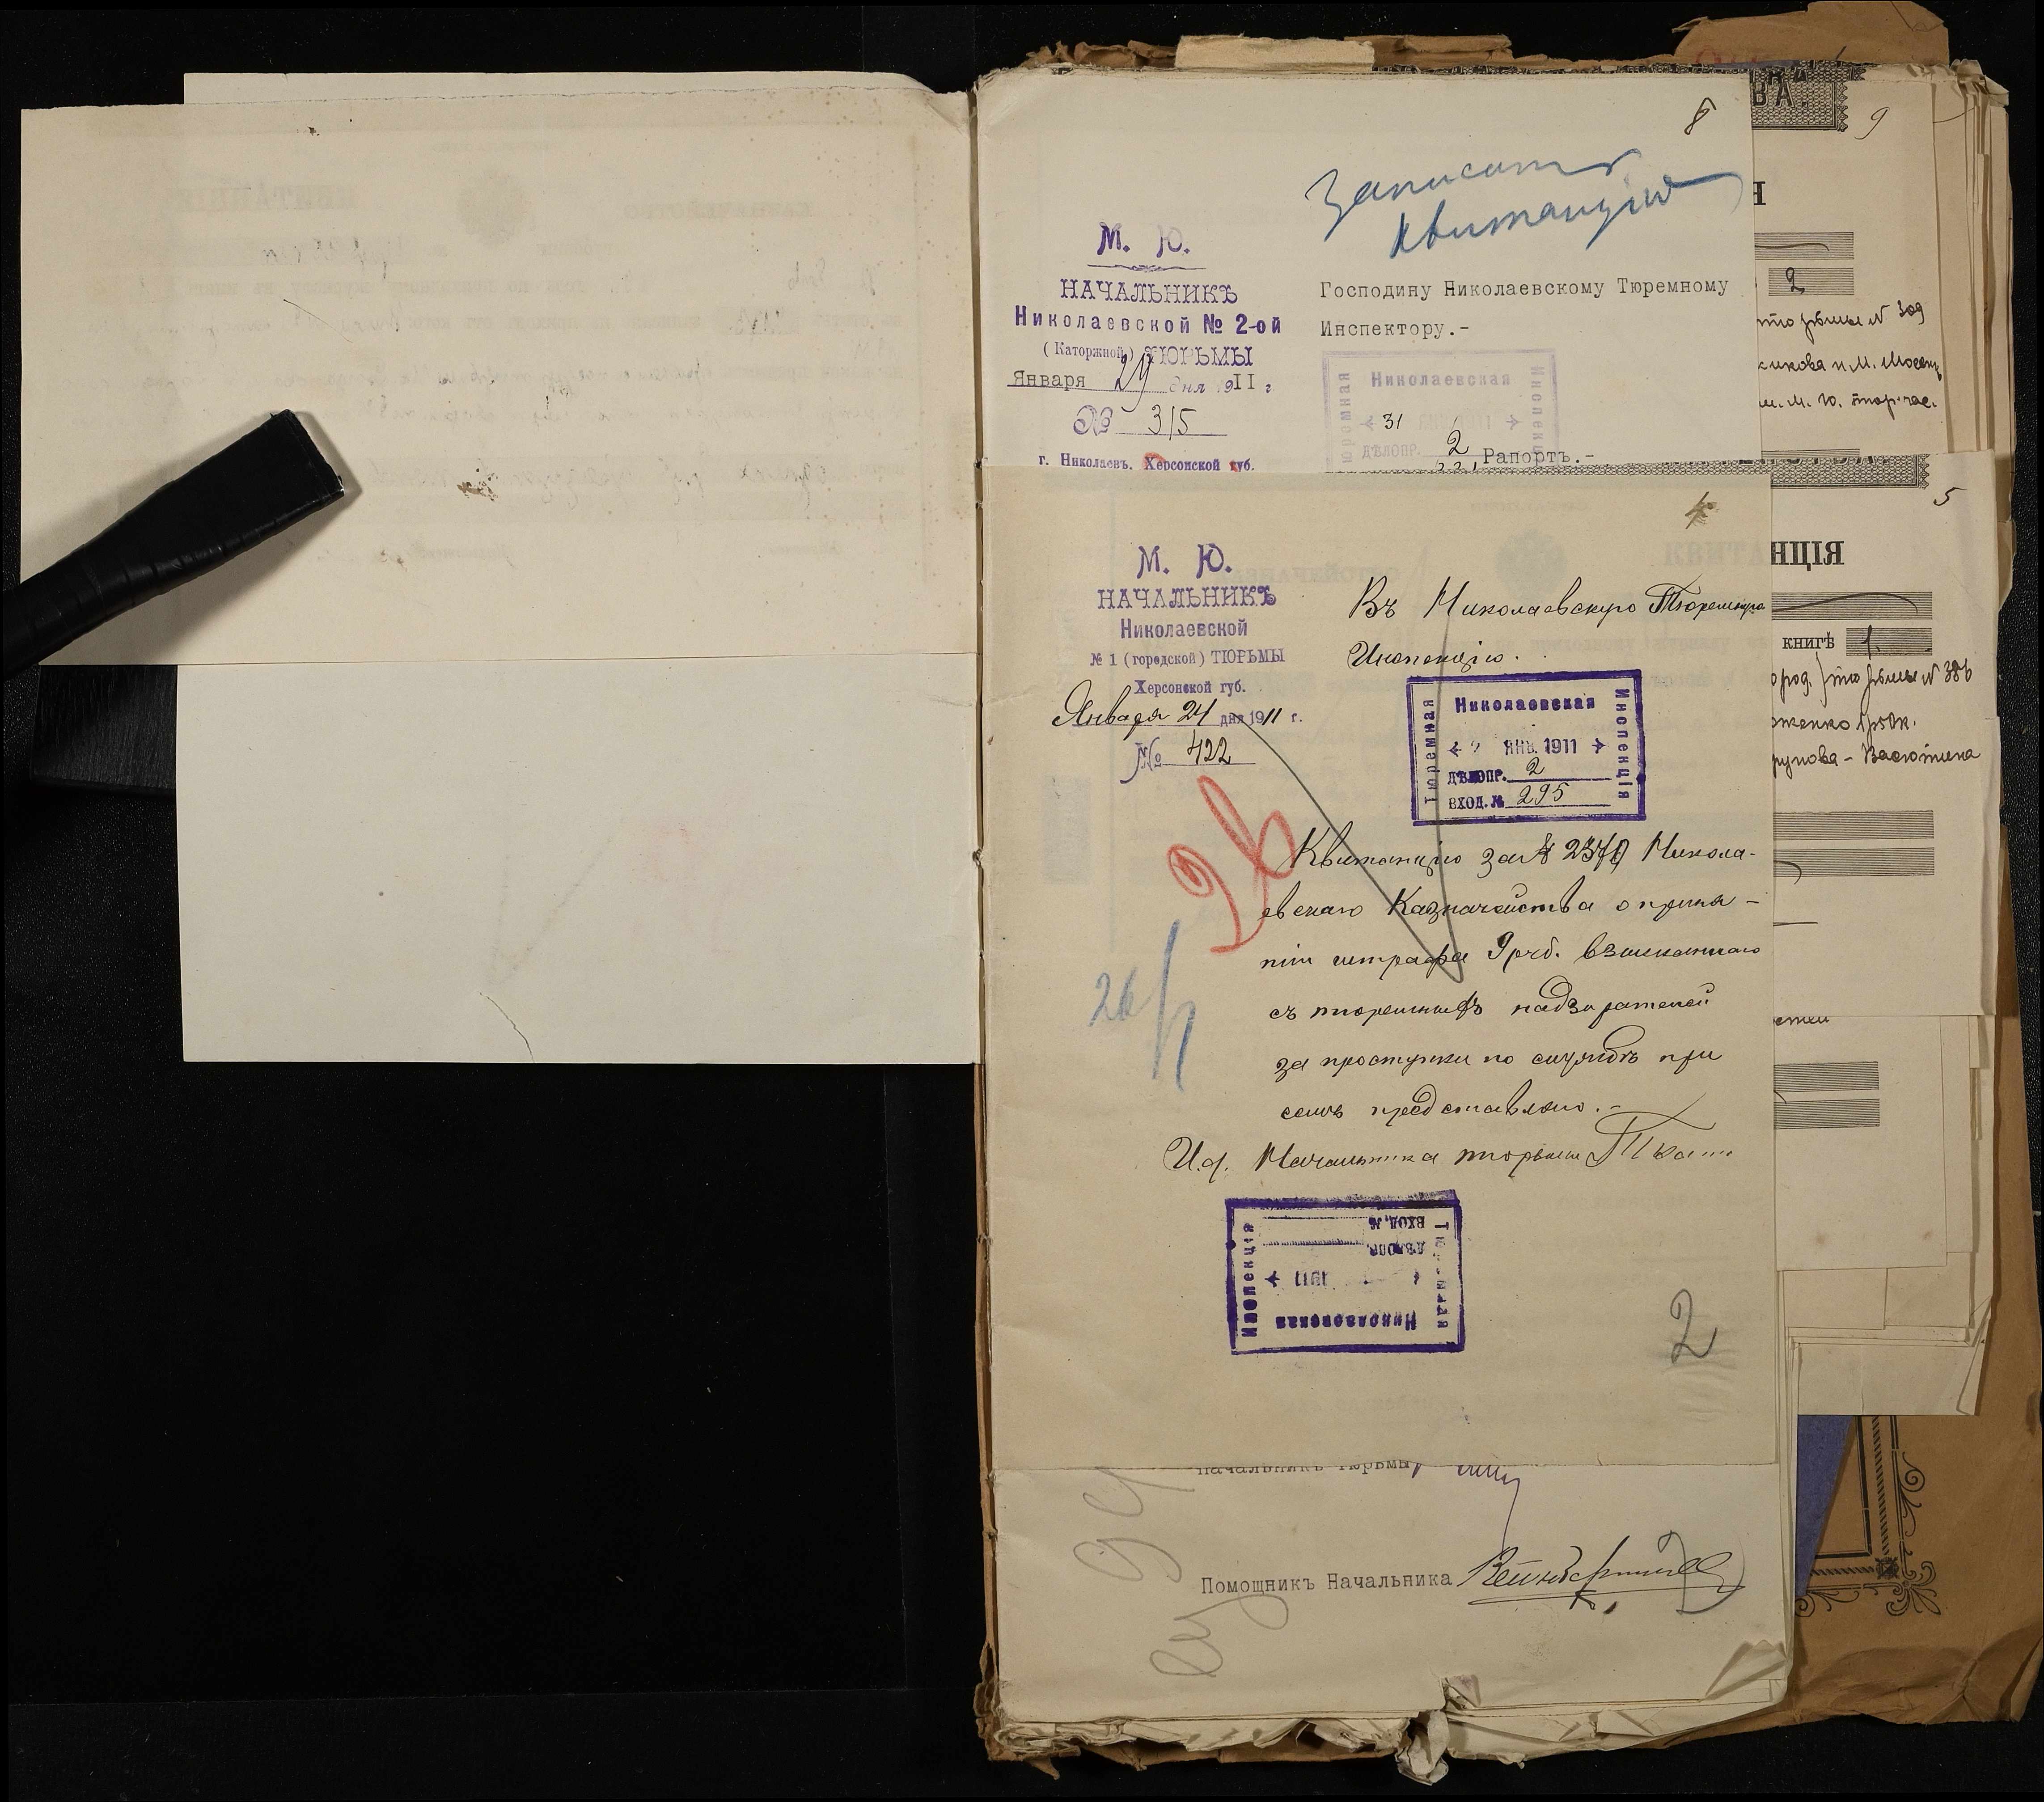 8
Записать
квитанцію
М. Ю.
НАЧАЛЬНИКЪ
Николаевской № 2-ой
(Каторжной) ТЮРЬМЫ
Января 29 дня 1911 г
№ 315
г. Николаевъ, Херсонской губ.
Господину Николаевскому Тюремному
Инспектору.-
Николаевская
Тюремная
Инспекція
31 ЯНВ 1911
ДѢЛОПР. 2
Рапортъ.-
9
2
тюрьмы № 309
М. Ю. тюр. час.
М. Ю.
НАЧАЛЬНИКЪ
Николаевской
№ 1 (городской) ТЮРЬМЫ
Херсонской губ.
Января 24 дня 1911 г.
№ 422
Въ Николаевскую Тюремную
Инспекцію.
Николаевская
Тюремная
Инспекція
ЯНВ. 1911
ДѢЛОПР. 2
ВХОД. № 295
Квитанцію за № 2370 Никола-
евскаго Казначейства о приня-
тіи штрафа 9 руб. взысканнаго
съ тюремныхъ надзирателей
за проступки по службѣ при
семъ представляю.-
И.д. Начальника тюрьмы
26
Николаевская
Тюремная
Инспекція
1911
ДѢЛОПР.
ВХОД. №
2
5
НЦІЯ
КНИГѢ 1.
тюрьмы № 386
Васютина
Начальникъ Тюрьмы
Помощникъ Начальника